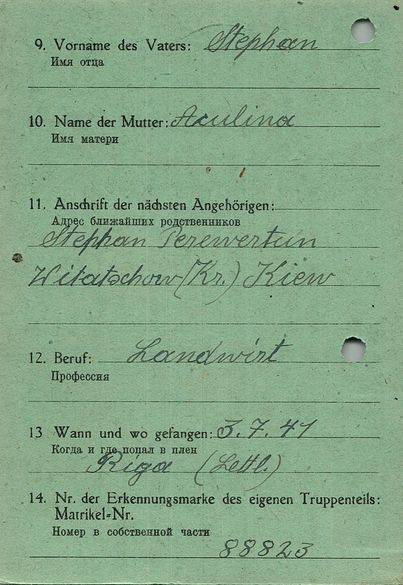 9. Vorname des Vaters: Stephan
Имя отца
10. Name der Mutter: Aculina
Имя матери
11. Anschrift der nächsten Angehörigen:
Адрес ближайших родственников
Stephan Perewertun
Witatschow (Kr.) Kiew
12. Beruf: Landwirt
Профессия
13 Wann und wo gefangen: 3.7.41
Когда и где попал в плен
Riga (Lettl.)
14. Nr. der Erkennungsmarke des eigenen Truppenteils:
Matrikel-Nr.
Номер в собственной части
88823